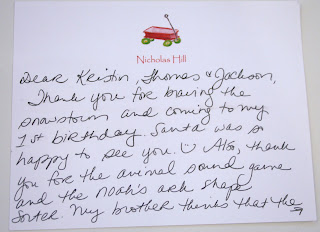 Nicholas Hill
Dear Kristin, Thomas & Jackson,
Thank you for braving the
snowstorm and coming to my
1st birthday. Santa was so
happy to see you. ☺ Also, thank
you for the animal sound game
and the Noah's ark shape
sorter. My brother thinks that the